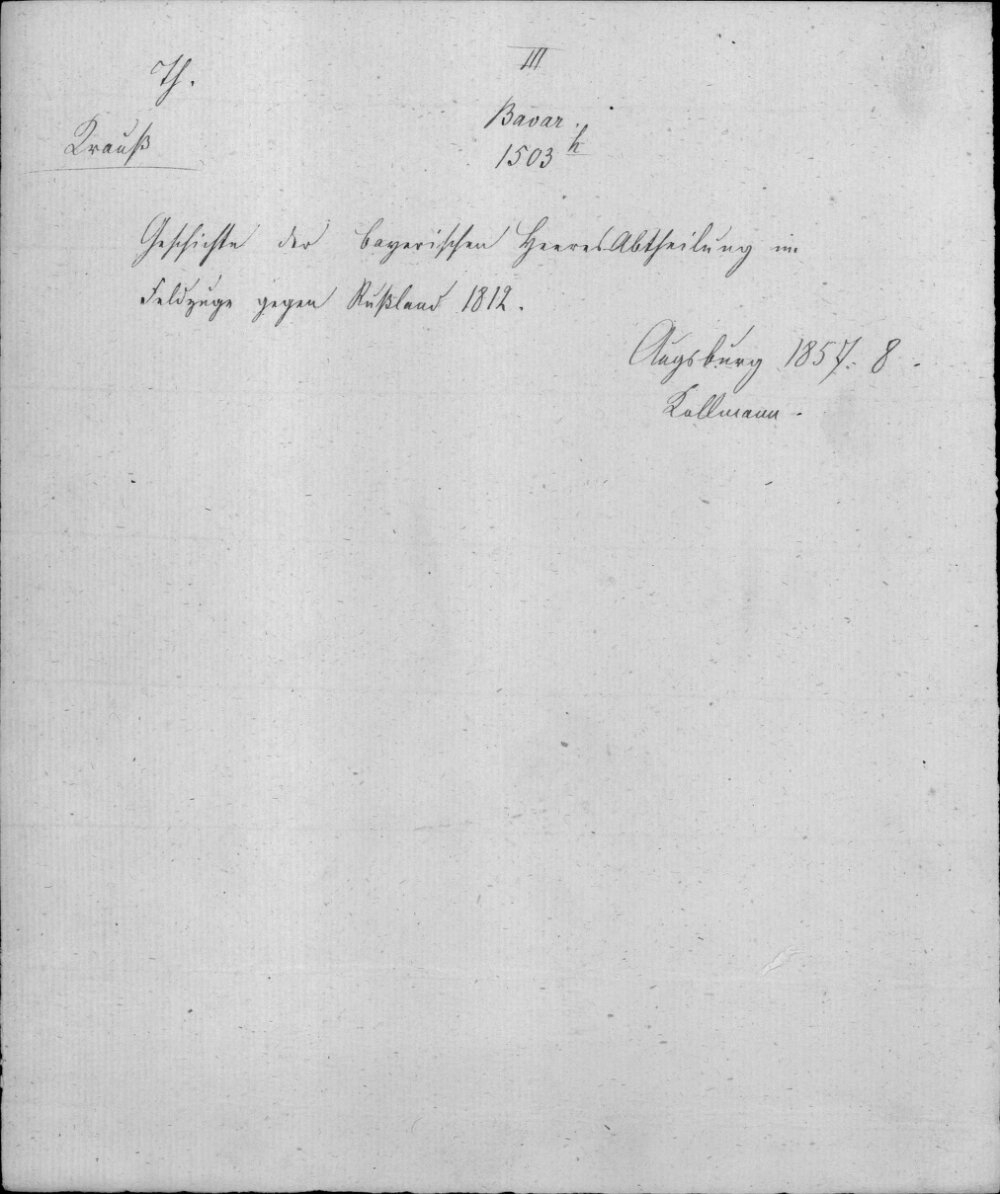 III
Th.
Krauß
Bavar.
1503 h
Geschichte der bayerischen Heeres-Abtheilung im
Feldzuge gegen Rußland 1812.
Augsburg 1857. 8.
Kollmann.